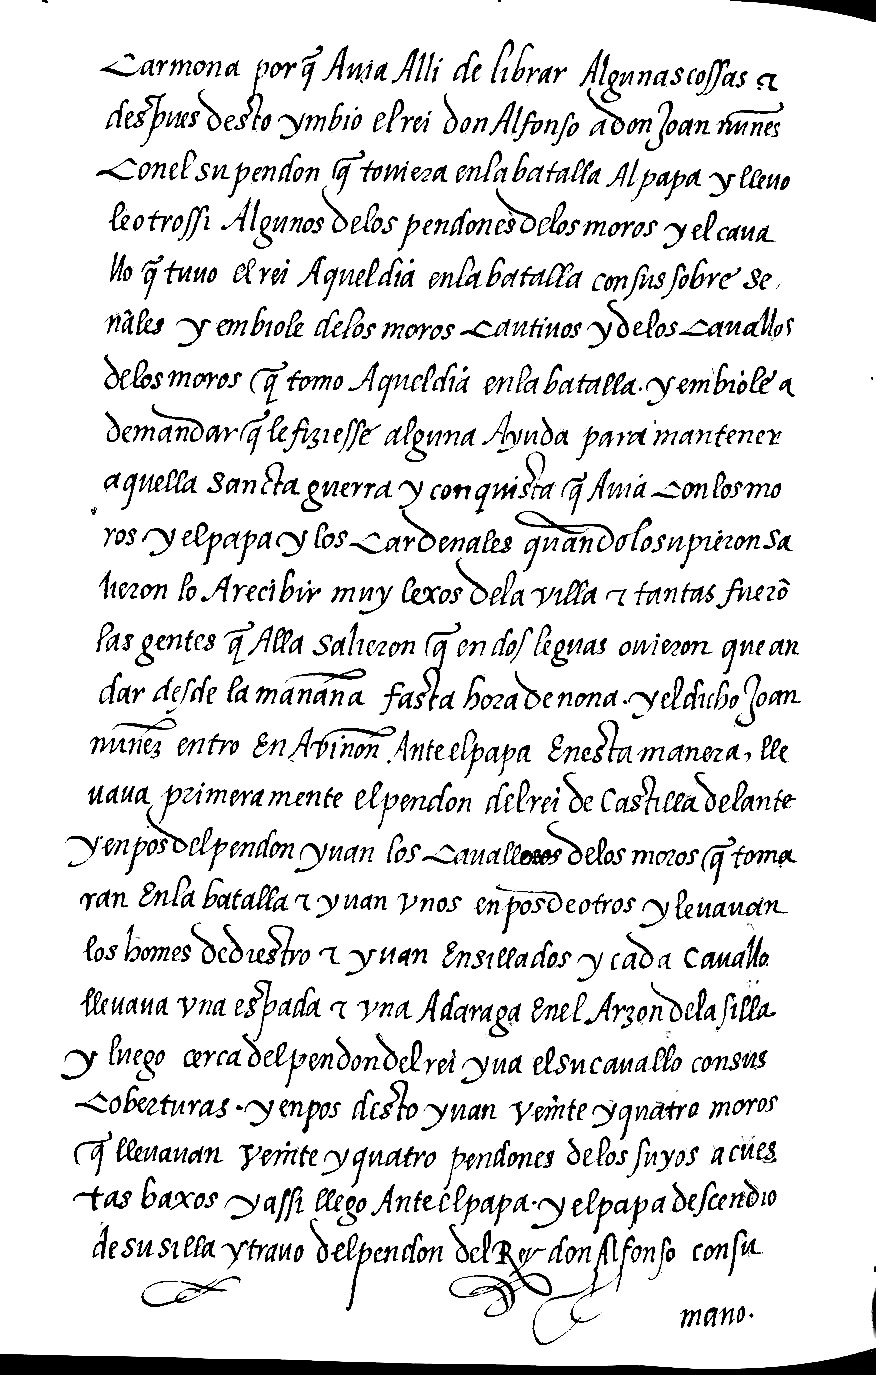 Carmona porq̃ Auia Alli de librar Algunas cossas ⁊
despues desto ymbio el rei don Alfonso a don Joan nuñes
Con el su pendon q̃ touiera en la batalla Al papa y lleuo
le otrossi Algunos de los pendones de los moros y el caua
llo q̃ tuuo el rei Aquel dia en la batalla con sus sobre se
ñales y embiole de los moros Cautiuos y de los Cauallos
de los moros q̃ tomo Aquel dia en la batalla. y embiole a
demandar q̃ le fiziesse alguna Ayuda para mantener
aquella Sancta guerra y conquista q̃ Auia Con los mo
ros y el papa y los Cardenales quando lo supieron sa
lieron lo A recibir muy lexos de la villa ⁊ tantas fuerõ
las gentes q̃ Alla Salieron q̃ en dos leguas ouieron que an
dar desde la mañana fasta hora de nona. y el dicho Joan
nuñez entro En Aviñon Ante el papa En esta manera, lle
uaua primeramente el pendon del rei de Castilla delante
y en pos del pendon yuan los Cauallos de los moros q̃ toma
ran En la batalla ⁊ yuan vnos en pos de otros y leuauan
los homes de diestro ⁊ yuan Ensillados y cada Cauallo
lleuaua vna espada ⁊ vna Adaraga En el Arzon de la silla
y luego cerca del pendon del rei yua el su cauallo con sus
Coberturas. y en pos desto yuan veinte y quatro moros
q̃ lleuauan veinte y quatro pendones de los suyos a cues
tas baxos y assi llego Ante el papa. y el papa descendio
de su silla y trauo del pendon del Rey don Alfonso con su
mano.